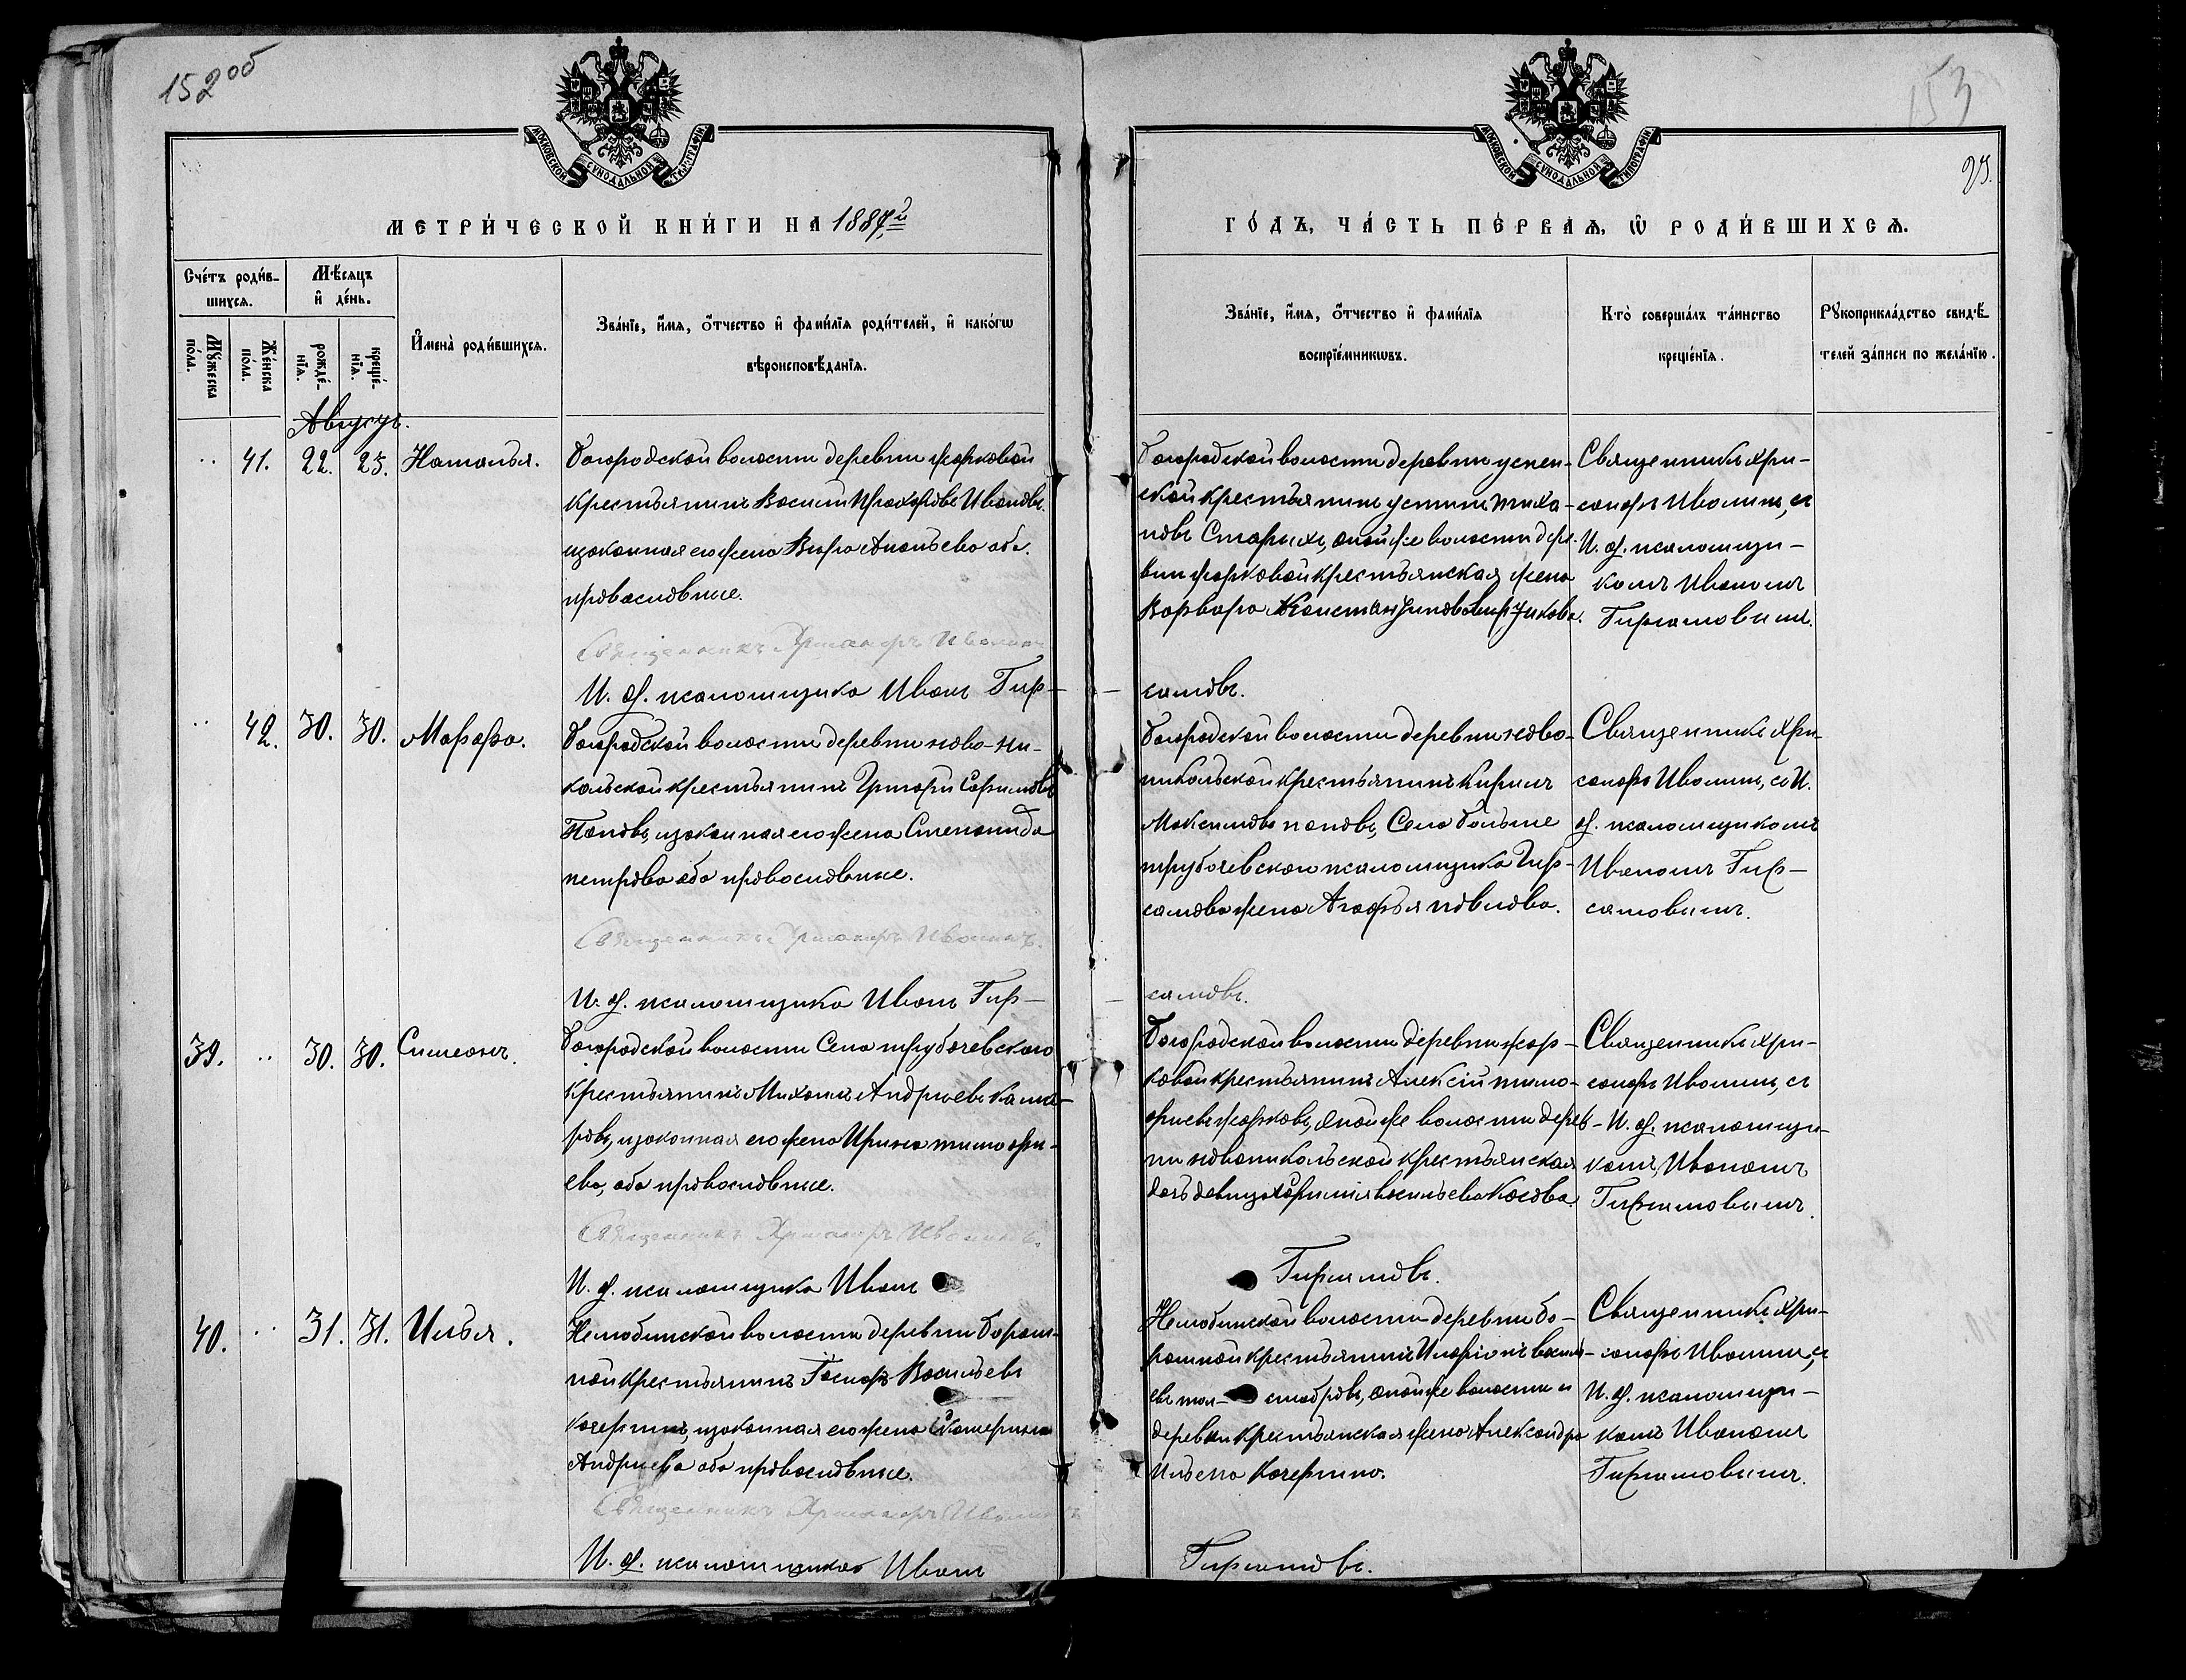 152 об
153
25.
МОСКОВСКОЙ СѴНОДАЛЬНОЙ ТИПОГРАФІИ
МОСКОВСКОЙ СѴНОДАЛЬНОЙ ТИПОГРАФІИ
МЕТРИ́ЧЕСКОЙ КНИ́ГИ НА 1887й
ГО́ДЪ, ЧА́СТЬ ПЕ́РВАѦ, Ѡ҆ РОДИ́ВШИХСѦ.
Сче́тъ роди́в-
шихсѧ.
Мѣ́сяцъ
и҆ де́нь.
Мꙋ́жеска
по́ла.
Же́нска
по́ла.
рожде́-
нїѧ.
креще́-
нїѧ.
И҆мена̀ роди́вшихсѧ.
Зва́нїе, и҆́мѧ, ѻ҆́тчество и҆ фами́лїѧ роди́телей, и҆ како́гѡ
вѣроисповѣ́данїѧ.
Зва́нїе, и҆́мѧ, ѻ҆́тчество и҆ фами́лїѧ
воспрїе́мникѡвъ.
Кто̀ соверша́лъ та́инство
креще́нїѧ.
Рꙋкоприкла́дство свидѣ́-
телей за́писи по жела́нїю.
Августъ.
.. 41. 22. 23. Наталья.
Богородской волости деревни жарковой
крестьянинъ Василий Прохоровъ Ивановъ
изаконная его жена Вера Ананьева оба
православные.
Священникъ Хрисанфъ Иволинъ
И. д. псаломщика Иванъ Гир-
Богородской волости деревни успен-
ской крестьянинъ устинъ тиха-
новъ Старыхъ, оной же волости дере-
вни жарковой крестьянская жена
Варвара Константинова
Священникъ Хри-
санфъ Иволинъ, съ
И. д. псаломщи-
комъ Иваномъ
Гирсамовымъ.
самовъ.
.. 42. 30. 30. Марфа.
Богородской волости деревни ново-ни-
кольской крестьянинъ Григори Ефимовъ
Поповъ, изаконная его жена Степанида
петрова оба православные.
Священникъ Хрисанфъ Иволинъ.
И. д. псаломщика Иванъ Гир-
Богородской волости деревни ново-
никольской крестьянинъ Кирилъ
Максимовъ поповъ, Села больше
трубачевскаго псаломщика Гир-
самова жена Агафья павлова.
Священникъ Хри-
санфъ Иволинъ, съ И.
д. псаломщикомъ
Иваномъ Гир-
самовымъ.
самовъ.
39. .. 30. 30. Симеонъ.
Богородской волости Села трубачевскаго
крестьянинъ Михаилъ Андреевъ Кома-
ровъ, изаконная его жена Ирина тимофи-
ева, оба православные.
Священникъ Хрисанфъ Иволинъ.
И. д. псаломщика Иванъ
Богородской волости деревни жар-
ковой крестьянинъ Алексій тимо-
фиевъ жарковъ, оной же волости дерев-
ни новоникольской крестьянская
дочь девица Ефимия васильева Косова.
Священникъ Хри-
санфъ Иволинъ, съ
И. д. псаломщи-
комъ Иваномъ
Гирсамовымъ.
Гирсамовъ.
40. .. 31. 31. Илья.
Нелюбинской волости деревни Бораш-
ной крестьянинъ Васильевъ
Кочергинъ, изаконная его жена Екатерина
Андреева оба православные.
Священникъ Хрисанфъ Иволинъ
И. д. псаломщика Иванъ
Нелюбинской волости деревни бо-
рашной крестьянинъ Иларіонъ васильевъ
оной же волости и
деревни крестьянская жена Александра
Ильена Кочергина.
Священникъ Хри-
санфъ Иволинъ, съ
И. д. псаломщи-
комъ Иваномъ
Гирсамовымъ.
Гирсамовъ.